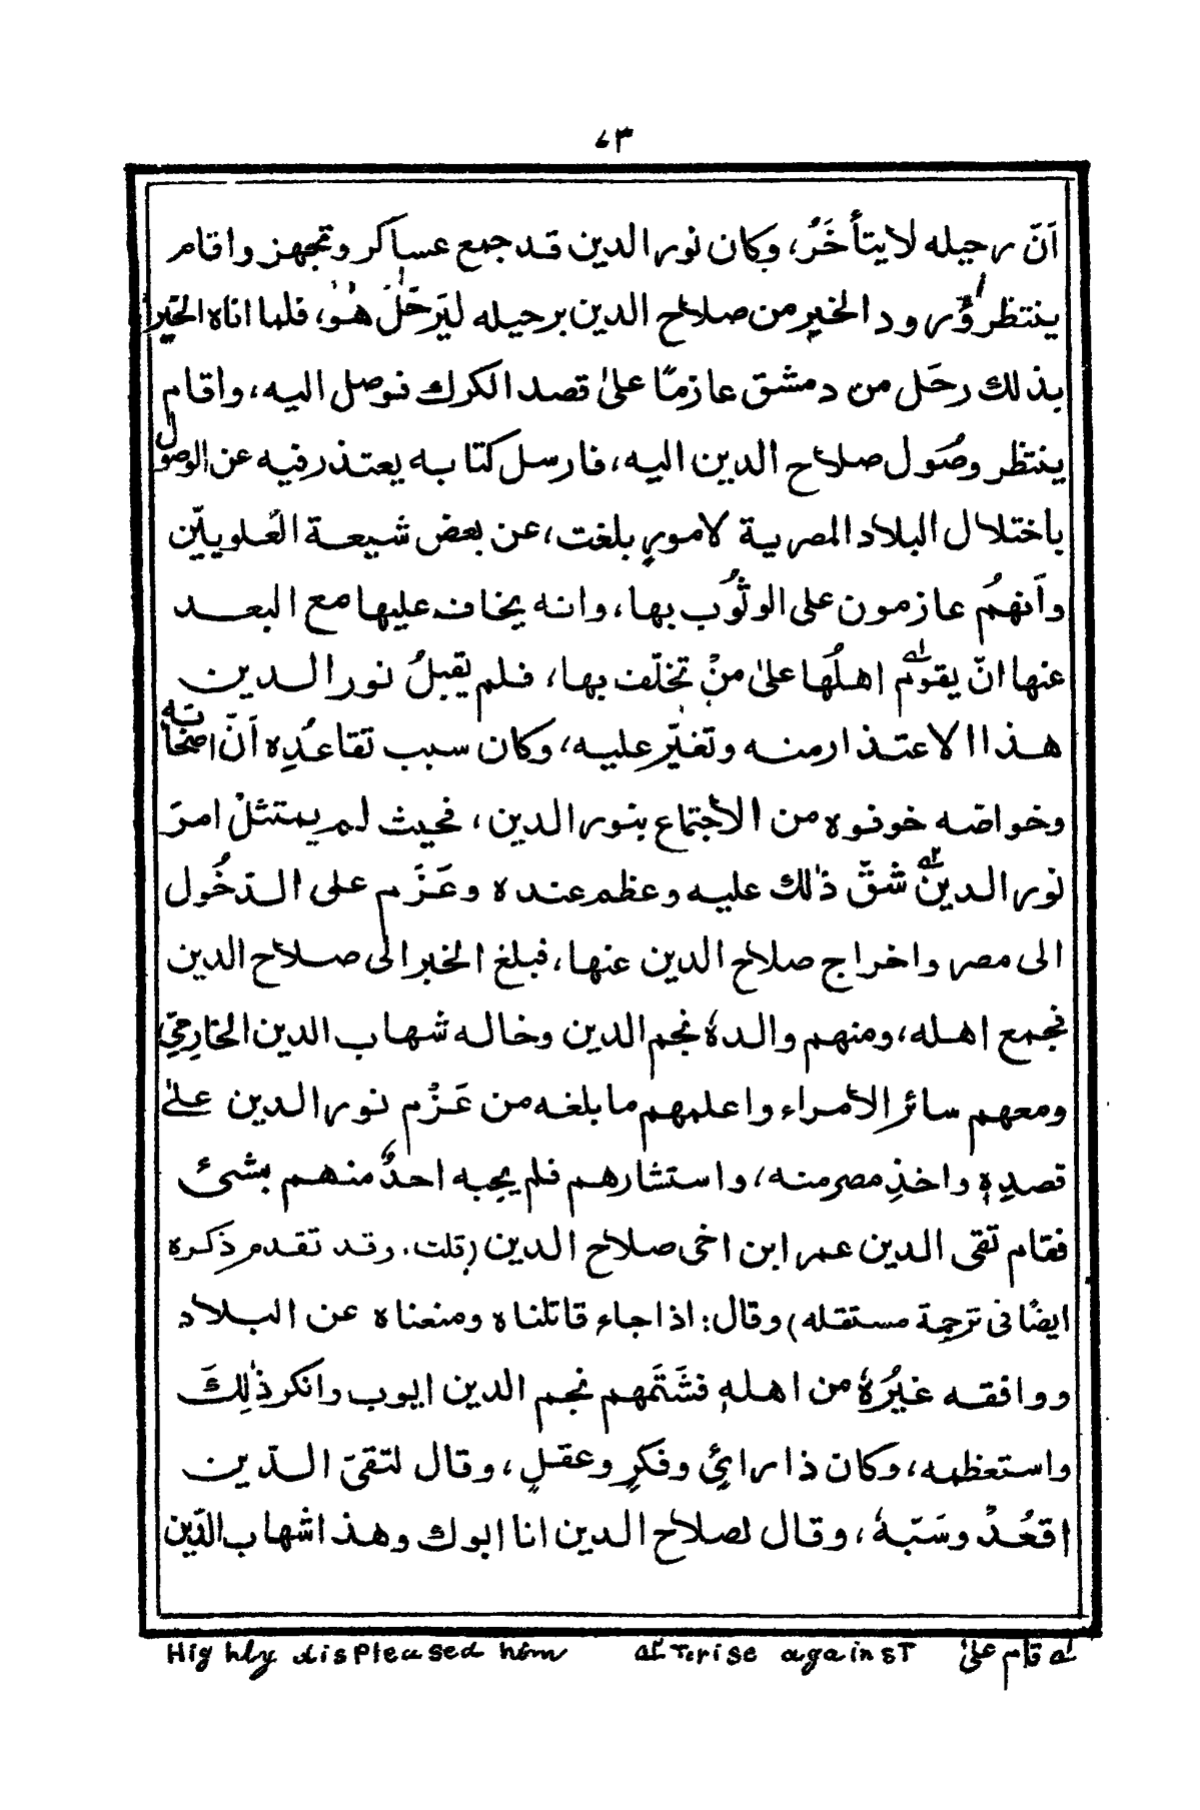 ٧٣
اَنّ رحيله لا يتأخَرُ، وكان نور الدين قد جمع عساكر وتجهز واقام
ينتظر وُرود الخبر من صلاح الدين برحيله ليَرحَلَ هُوُ، فلما اتاه الخبر
بذلك رحَل من دمشق عازمًا علىٰ قصد الكرك فوصل اليه، واقام
ينتظر وصُول صلاح الدين اليه، فارسل كتابه يعتذر فيه عن الوصول
باختلال البلاد المصرية لامورٍ بلغت، عن بعض شيعة العُلويين
واَنهمُ عازمون على الوثُوب بها، وانه يخاف عليها مع البعد
عنها انّ يقومَ اهلُها علىٰ منْ تخلّف بها، فلم يقبلُ نور الدين
هذا الاعتذار منه وتغيّر عليه، وكان سبب تقاعُدِه اَنّ اصحابه
وخواصه خوفوه من الاجتماع بنور الدين، فحيث لم يمتثلْ امرَ
نور الدين شقّ ذٰلك عليه وعظم عنده وعَزَم على الدخُول
الى مصر واخراج صلاح الدين عنها، فبلغ الخبر الى صلاح الدين
فجمع اهله، ومنهم والدهُ نجم الدين وخاله شهاب الدين الحَارِميّ
ومعهم سائر الأمراء واعلمهم ما بلغه من عَزْم نور الدين علىٰ
قصدِهٖ واخذِ مصر منه، واستشارهم فلم يجبه احدٌ منهم بشئ
فقام تقى الدين عمر ابن اخى صلاح الدين (قلت. وقد تقدم ذكره
ايضًا فى ترجمة مستقله) وقال: اذا جاء قاتلناه ومنعناه عن البلاد
ووافقه غيرُهٗ من اهله فشَتَمهم نجم الدين ايوب وانكر ذٰلِكَ
واستعظمه، وكان ذا رائٍ وفكرٍ وعقلٍ، وقال لتقىّ الدّين
اقعُدْ وسَبّهٗ، وقال لصلاح الدين انا ابوك وهذا شهاب الدّين
له قام علىٰ to rise against Highly displeased him